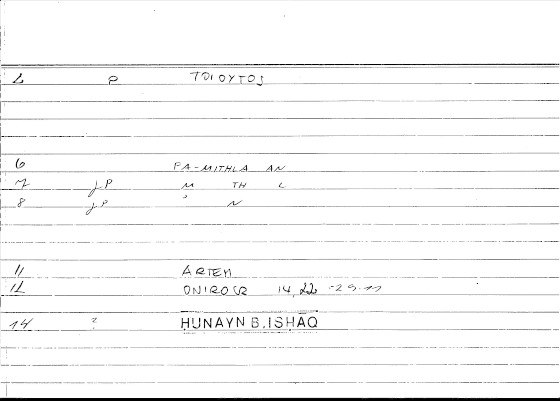 1 P ΤΟΙΟΥΤΟΣ
6 FA-MITHLA AN
7 JP M TH L
8 JP ʾ N
11 ARTEM
12 ONIROCR 14, 22 - 25.11
14 ? ḤUNAYN B. ISḤĀQ